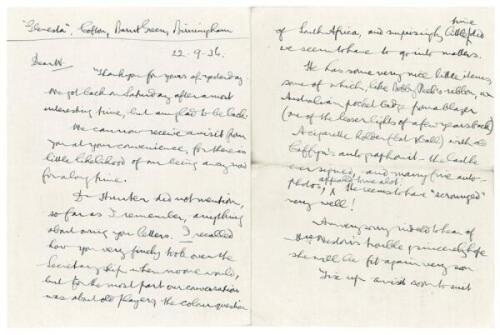 "Glenesta", Cofton, Barnt Green, Birmingham
22-9-36.
Dear H.
Thank you for yours of yesterday
We got back on Saturday after a most
interesting time, but am glad to be back.
We can now receive a visit from
you at your convenience, for there is
little likelihood of our being away now
for a long time.
Dr Hunter did not mention,
so far as I remember, anything
about your letters. I recalled
how you very finely took over the
Secretaryship when no one would,
but for the most part our conversation
was about old players, the colour question
of South Africa, and surprisingly little time
we seem to have to go into matters.
He has some very nice little items,
some of which, like Bobby Peel's ribbon, an
Australian pocket badge from a blazer
(one of the lesser lights of a few years back)
A cigarette holder (flat & small) with
Caffyn's autograph on it - the Castle
ever signed, and many fine auto-
photos, I appreciated a lot. He seems to have "scrounged"
very well!
Am very sorry indeed to hear of
trouble & sincerely hope
she will be fit again very soon
Fix up a visit soon to meet